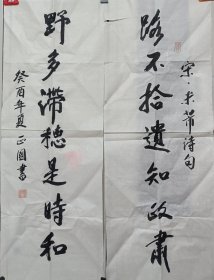 宋·朱芾诗句
路不拾遗知政肃
野多滞穗是时和
癸酉年夏正国书